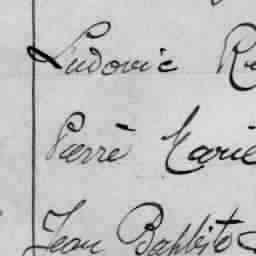 Ludovic R
Pierre Marie
Jean Baptiste